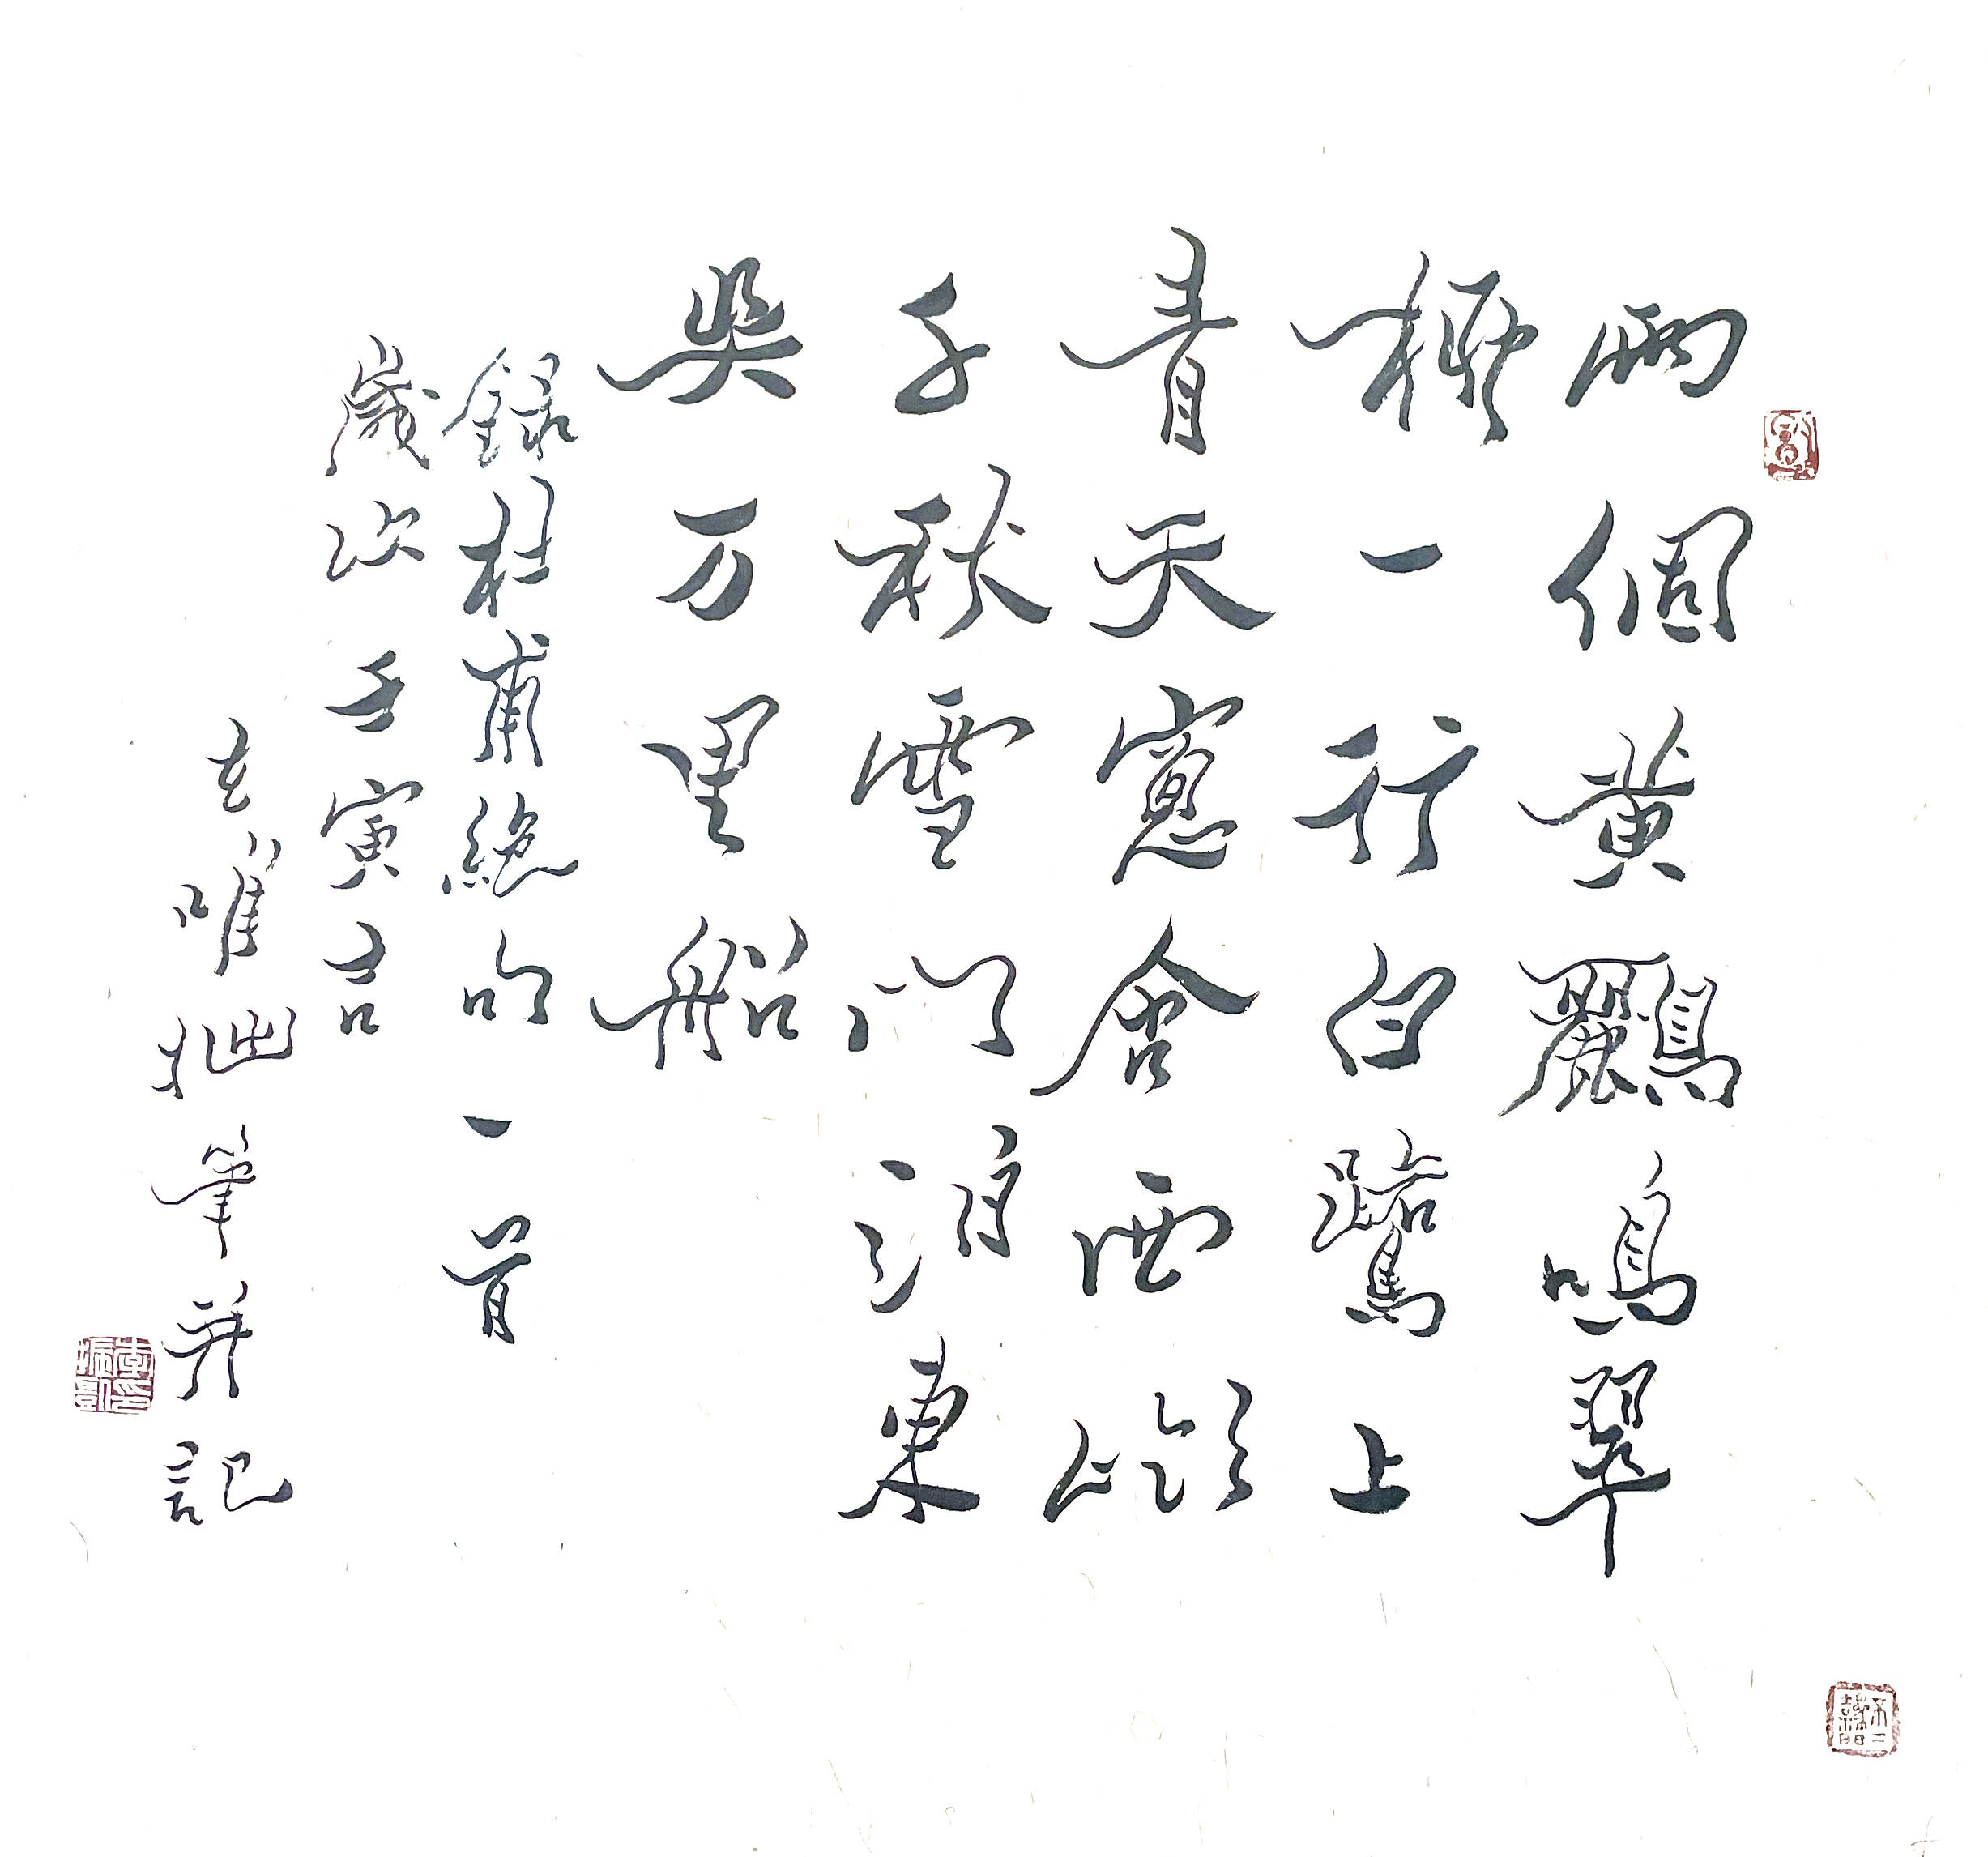 兩個黃鸝鳴翠
柳一行白鷺上
青天窻含西嶺
千秋雪門泊東
吳万里船
錄杜甫絕句一首
歲次壬寅吉
唯拙筆并記